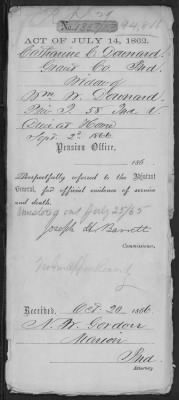 94,811
ACT OF JULY 14, 1862.
Catharine C Downard
Grant Co Ind.
Widow of
Wm W. Downard
Priv I 58 Ind V
Died at Home
Sept. 2d 1866
Pension Office,
186
Respectfully referred to the Adjutant
General, for official evidence of service
and death.
out July 25/65
Joseph H Barrett
Commissioner.
Received, Oct. 20 1866
N. W. Gordon
Marion
Ind
Attorney